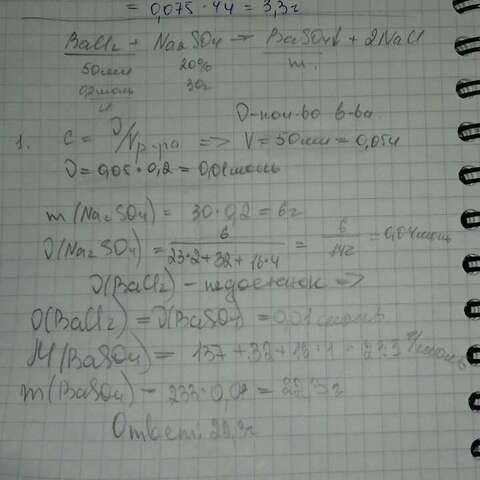 = 0,075 · 44 = 3,3г
BaCl2 + Na2SO4 → BaSO4↓ + 2NaCl
50мл 20% m.
0,2моль 30г
υ-кол-во в-ва
1. C = υ/Vр-ра => V = 50мл = 0,05л
υ = 0,05 · 0,2 = 0,01моль
m(Na2SO4) = 30 · 0,2 = 6г
υ(Na2SO4) = 6/23·2+32+16·4 = 6/142 = 0,04моль
υ(BaCl2) - недостаток =>
υ(BaCl2) = υ(BaSO4) = 0,01моль
M(BaSO4) = 137 + 32 + 16 · 4 = 233 г/моль
m(BaSO4) - 233 · 0,01 =
Ответ: